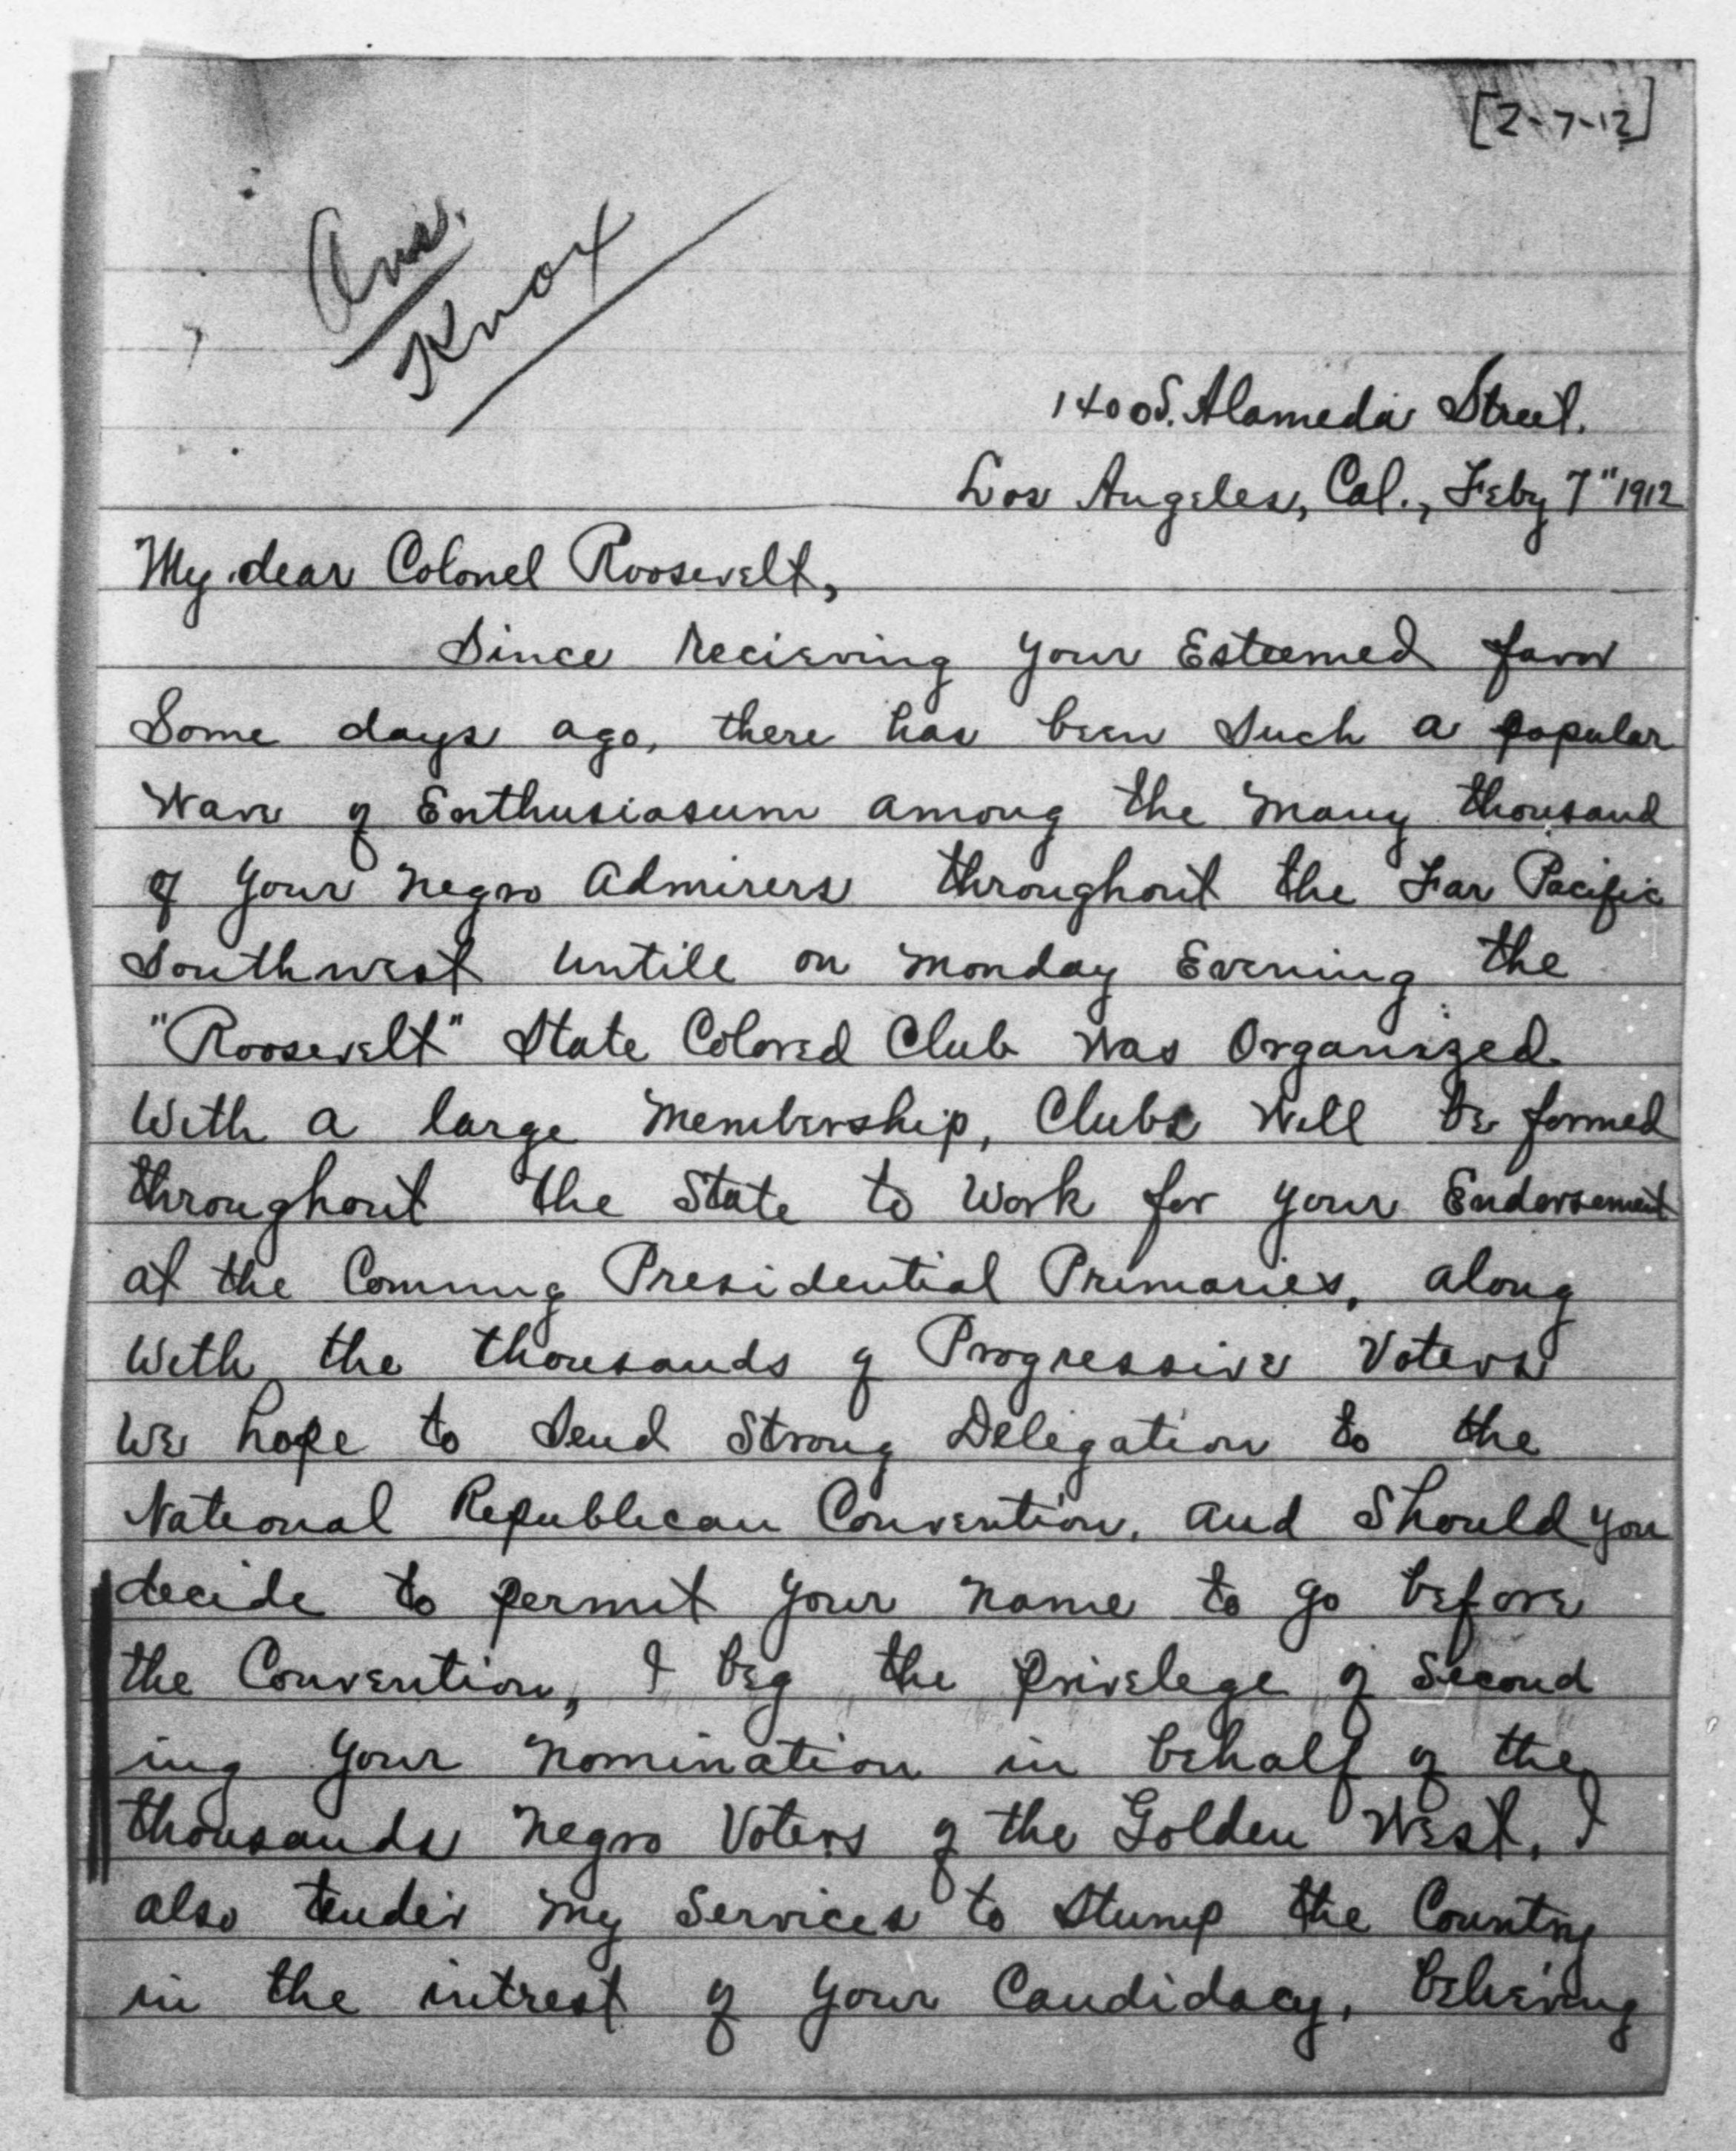 [2-7-12]
Ans.
Knox
1400 S. Alameda Street.
Los Angeles, Cal., Feby 7" 1912
My dear Colonel Roosevelt,
Since Recieving your Esteemed favor
Some days ago, there has been Such a popular
Wave of Enthusiasum among the Many thousand
of your Negro Admirers throughout the Far Pacific
Southwest untile on Monday Evening the
"Roosevelt" State Colored Club was Organized
With a large Membership, Clubs Will be formed
throughout the State to Work for your Endorsement
at the Coming Presidential Primaries, along
With the thousands of Progressive Voters
We hope to Send Strong Delegation to the
National Republican Convention, and Should you
decide to permit your name to go before
the Convention, I beg the Privelege of Second
ing your Nomination in behalf of the
thousands Negro Voters of the Golden West, I
also tender my Services to Stump the Country
in the intrest of your Candidacy, believing